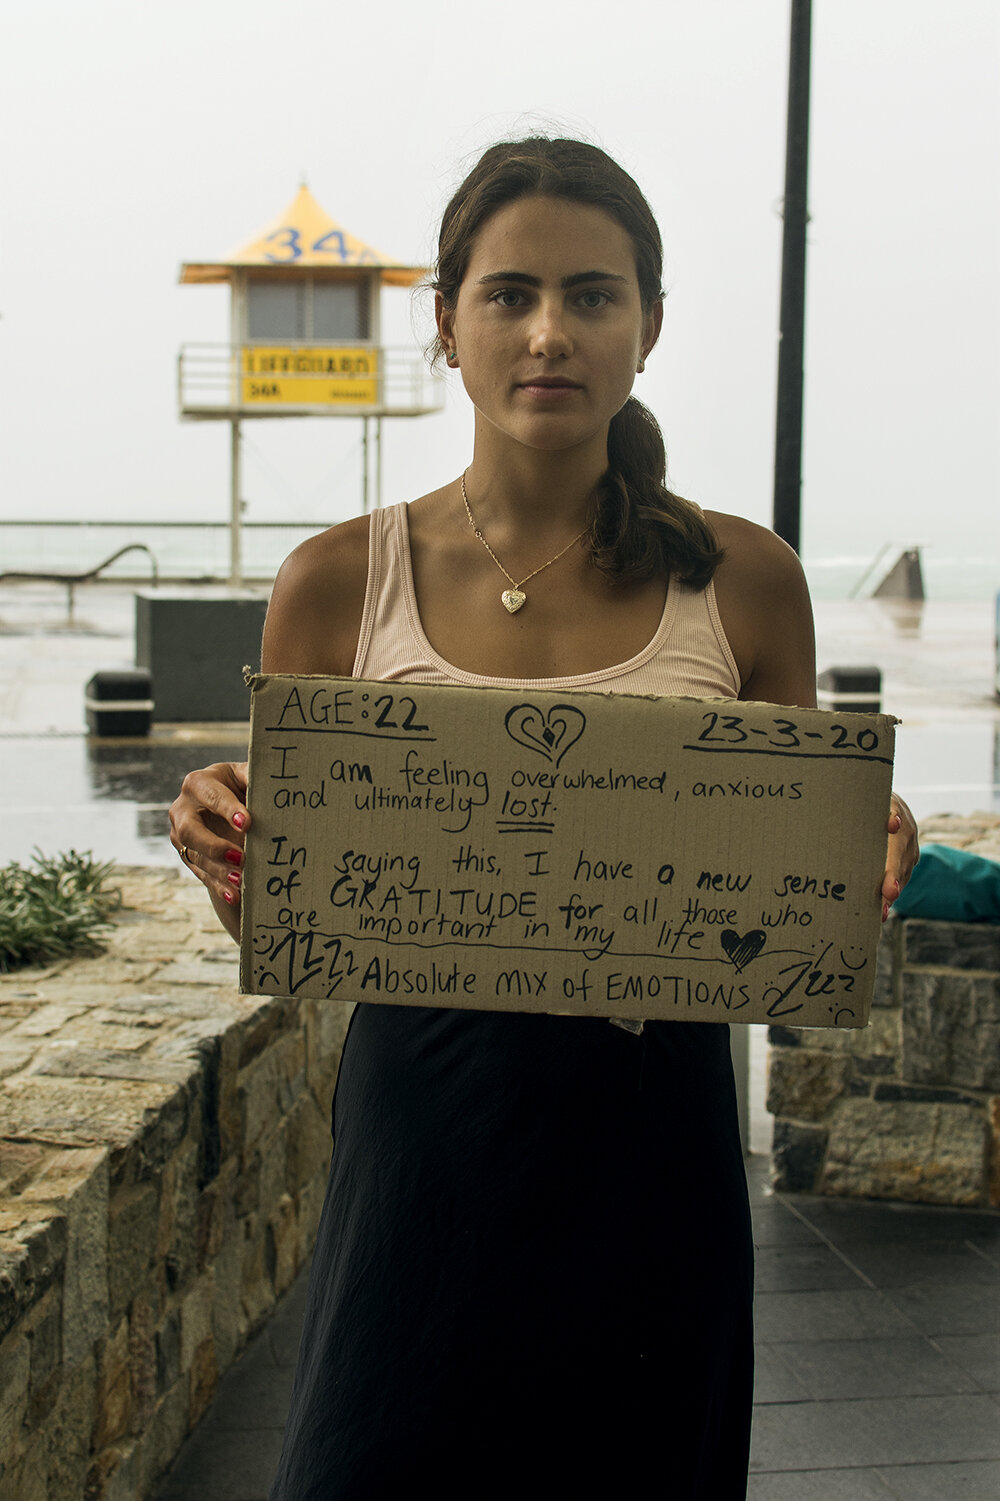 34A
LIFEGUARD
34A
AGE:22
23-3-20
I am feeling overwhelmed, anxious
and ultimately lost.
In saying this, I have a new sense
of GRATITUDE for all those who
are important in my life
Absolute mix of EMOTIONS